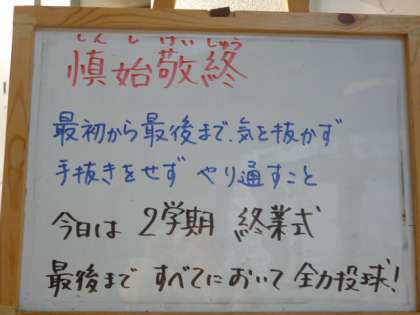 しん し けい しゅう
慎始敬終
最初から最後まで、気を抜かず
手抜きをせず やり通すこと
今日は 2学期 終業式
最後まで すべてにおいて 全力投球！